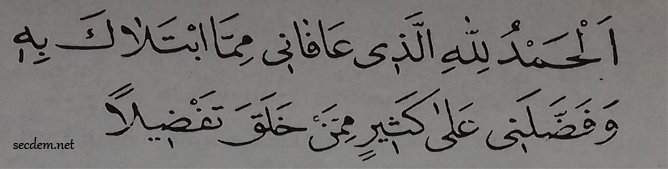 اَلْحَمْدُ لِلّٰهِ الَّذِى عَافَانِى مِمَّا ابْتَلَاكَ بِهِ
وَفَضَّلَنِى عَلٰى كَثِيرٍ مِمَّنْ خَلَقَ تَفْضِيلًا
secdem.net